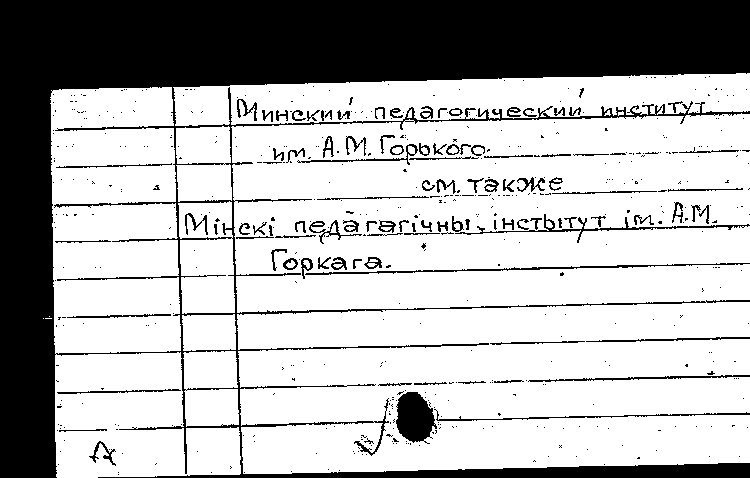 Минский педагогический институт
им. А.М. Горького.
см. также
Мінскі педагагічны інстытут ім. А.М.
Горкага.
А